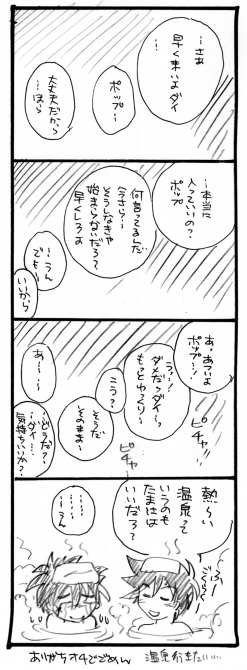 …さあ
早く来いよダイ
…
ポップ…
大丈夫だから
…ほら
…本当に
入っていいの？
ポップ
何言ってるんだ
今さら…
そうしなきゃ
始まらないだろ？
早くしろよ
…うん
でも…
いいから
あ・あついよ
ポップ…！
うっ…！
ダメだっダイ…っ
もっとゆっくり…
こう？
そうだ
そのまま…
あ……
…どうだ？
…ダイ…
気持ちいいか？
ピチャ…
ピチャ
熱ーい
温泉って
いうのも
たまには
いいだろ？
……
……うん
ありがちオチでごめん
温泉行きたい…